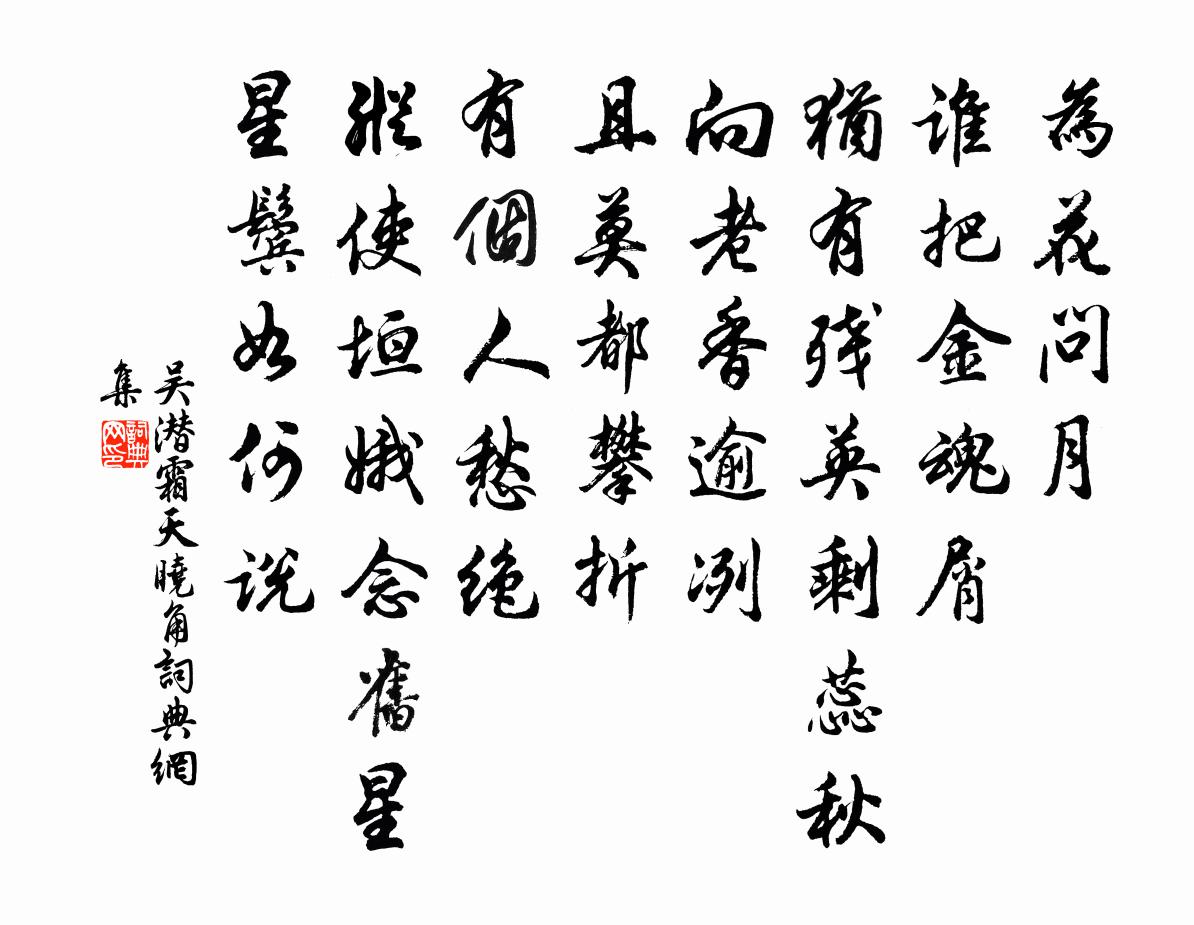 為花問月
誰把金魂屑
猶有残英剩蕊秋
向老香逾冽
且莫都攀折
有個人愁绝
縱使垣娥念舊星
星鬢如何説
吴潜霜天曉角詞典網
集
詞典网印